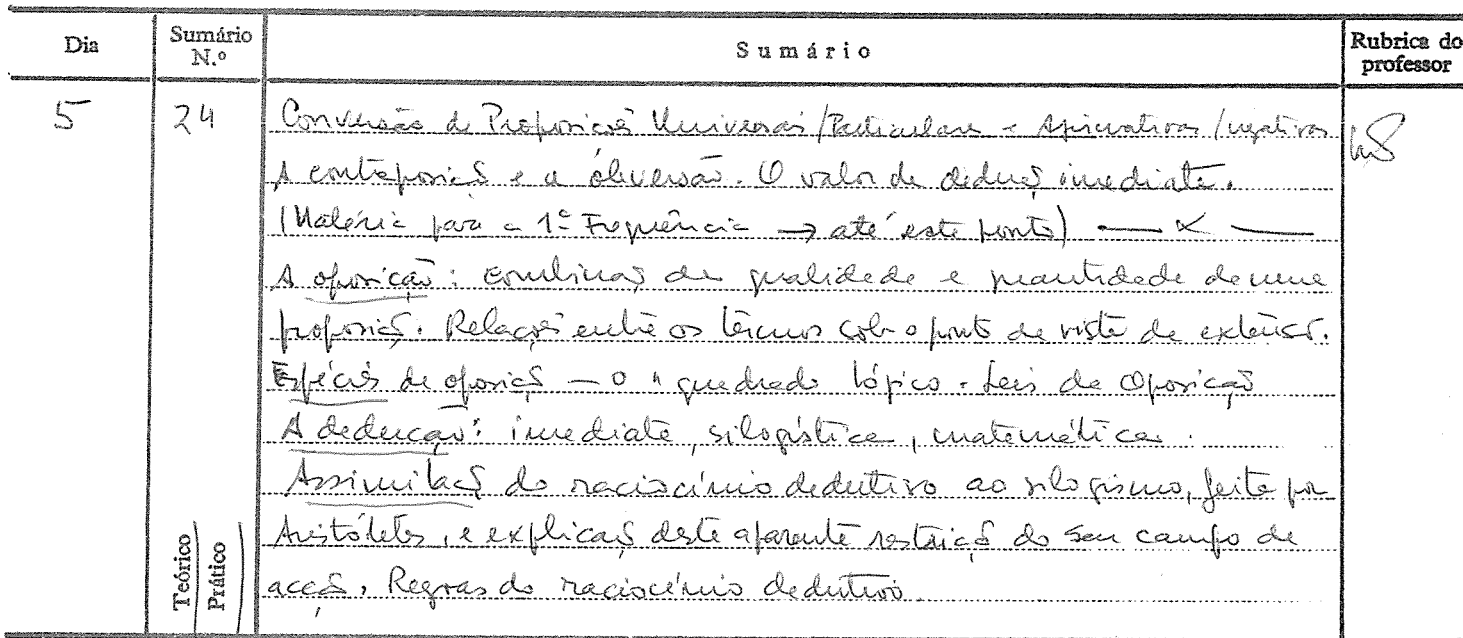 Dia
Sumário N.º
Sumário
Rubrica do professor
5
24
Conversão de Proposições Universais/Particulares - Afirmativas/negativas
A contraposição e a obversão. O valor da dedução imediata.
(Matéria para a 1ª Frequência → até este ponto)
A oposição: combinação da qualidade e quantidade de uma
proposição. Relações entre os termos sob o ponto de vista da extensão.
Espécies de oposição - o "quadrado lógico. Leis da Oposição
A dedução: imediata, silogística, matemática.
Assimilação do raciocínio dedutivo ao silogismo, feita por
Aristóteles, e explicação desta aparente restrição do seu campo de
acção. Regras do raciocínio dedutivo.
Teórico
Prático